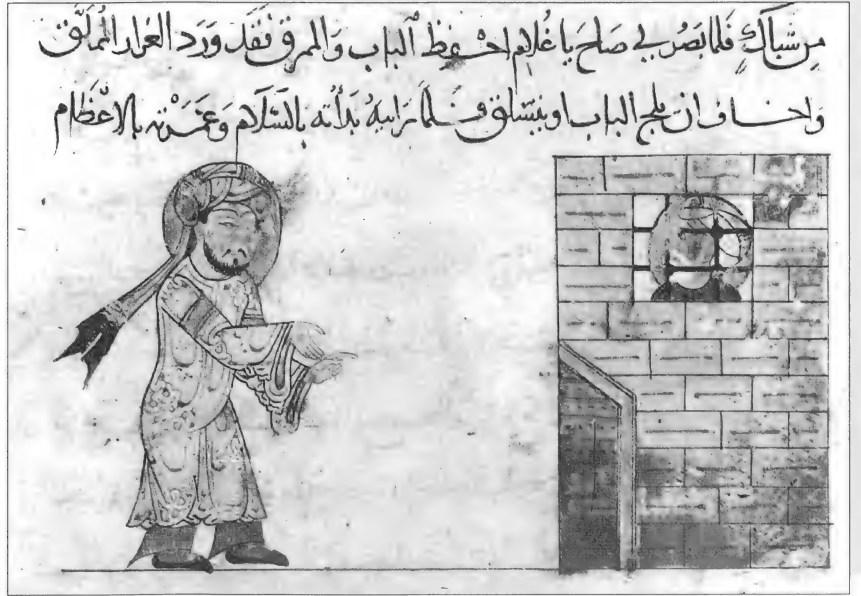 من شباكٍ فلما بصر بي صاح يا غُلام احفظ الباب والممرق فقد ورد العرار المملّق
واخاف ان يلج الباب او يتسلق فلما رايته بدأته بالسلام وغمرته بالاعظام